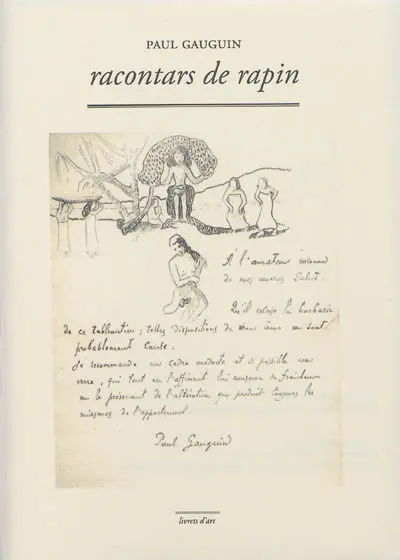 PAUL GAUGUIN
racontars de rapin
À l'amateur inconnu
de mes œuvres Salut.
Qu'il excuse la barbarie
de ce tableautin ; telles dispositions de mon âme en sont
probablement cause.
Je recommande un cadre modeste et si possible une
verre, qui tout en l'affinant lui conserve sa fraicheur
en le préservant de l'altération que produit toujours les
miasmes de l'appartement.
Paul Gauguin
livrets d'art